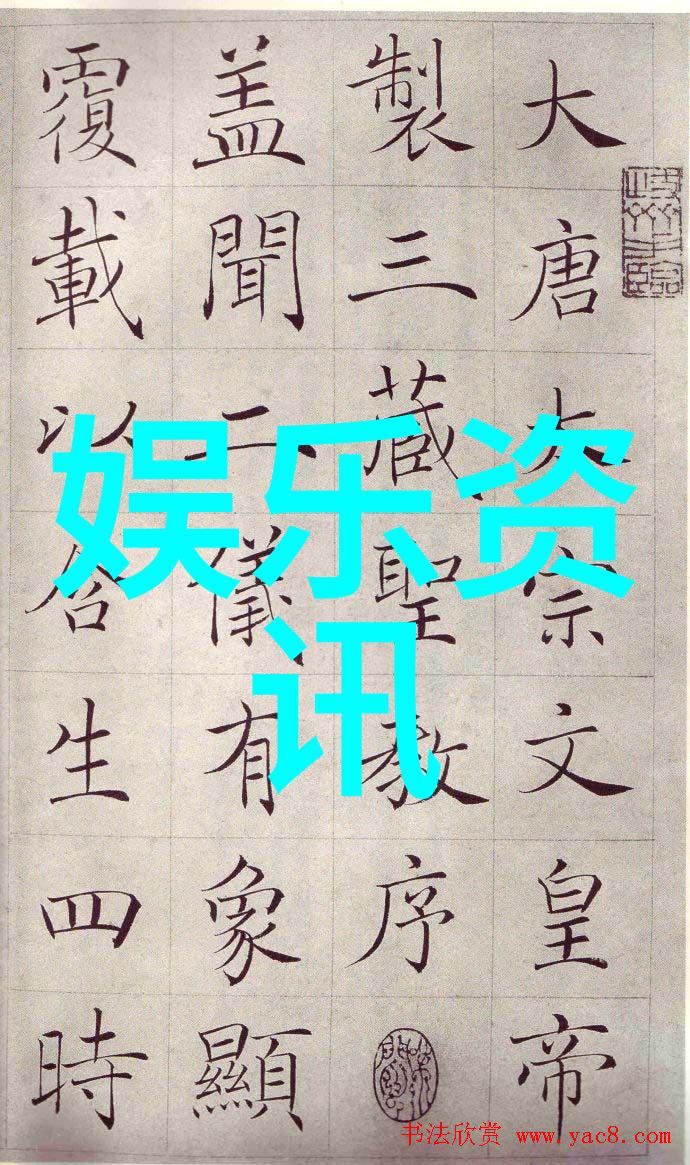 大唐太宗文皇帝
製三藏聖教序
盖聞二儀有象顯
覆載以含生四時
娱乐资
讯
书法欣赏 www.yac8.com